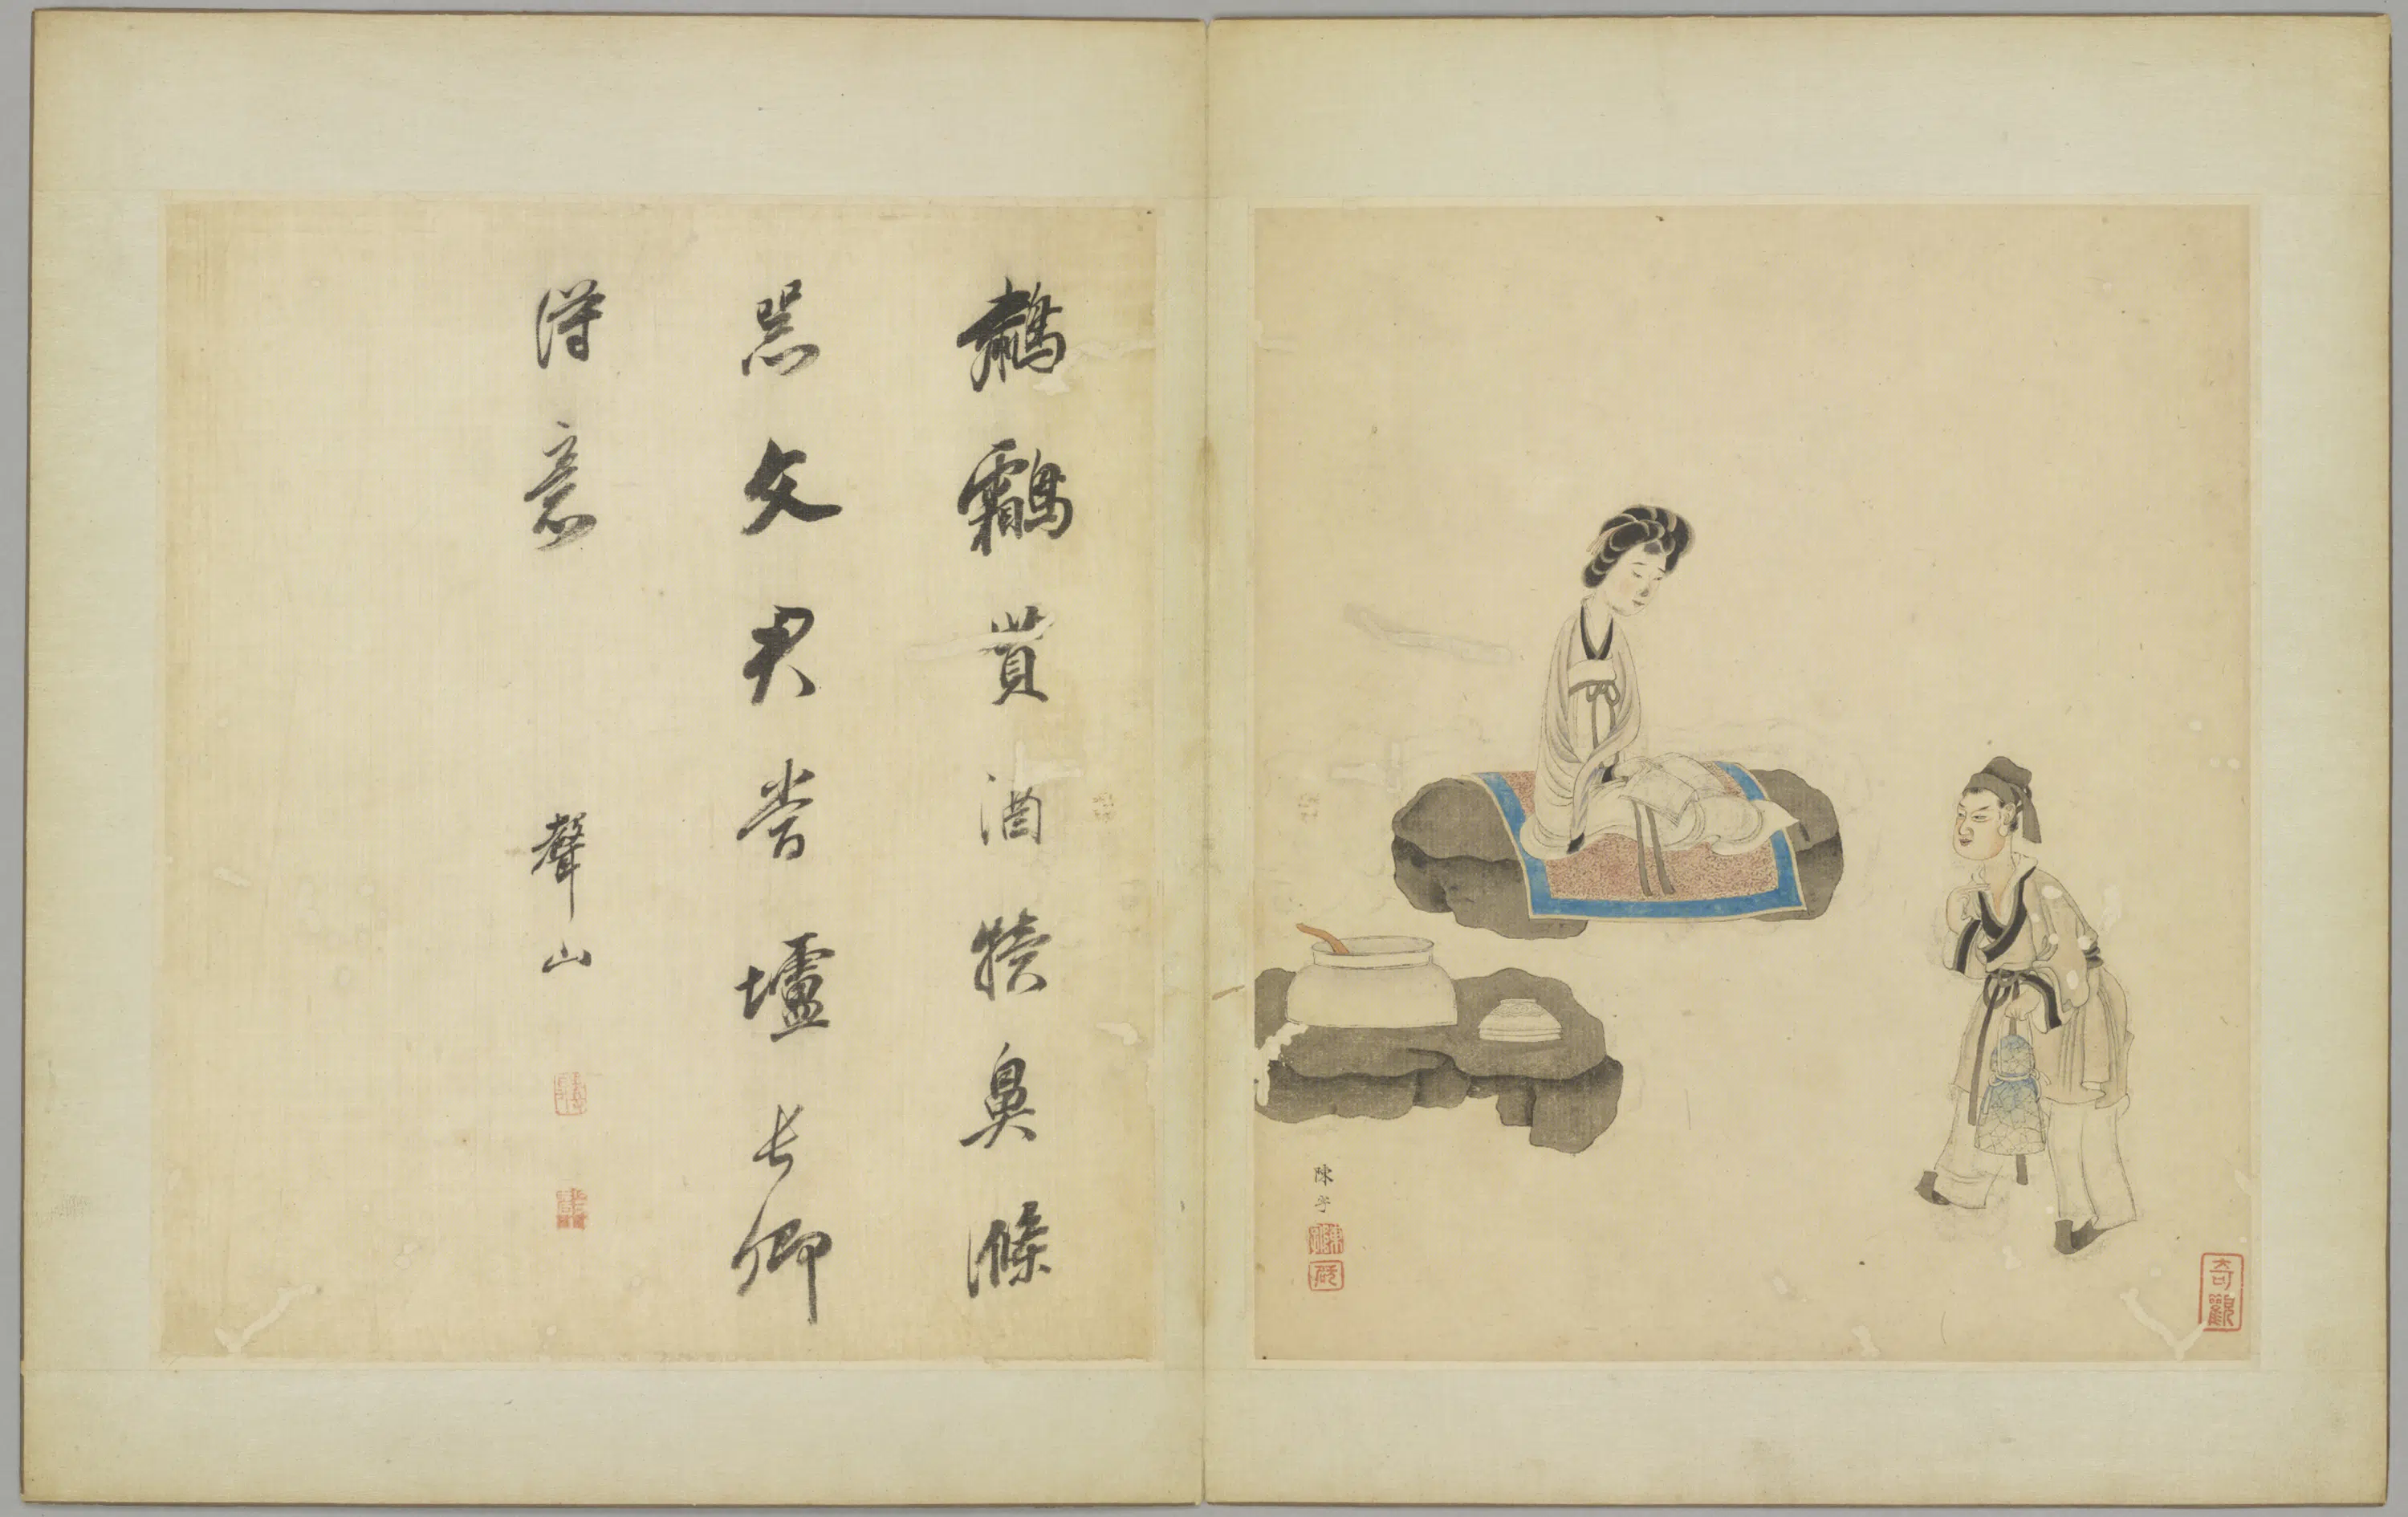 鷫鸘貰酒犢鼻滌
器文君當壚長卿
得意
聲山
陳字
奇觀